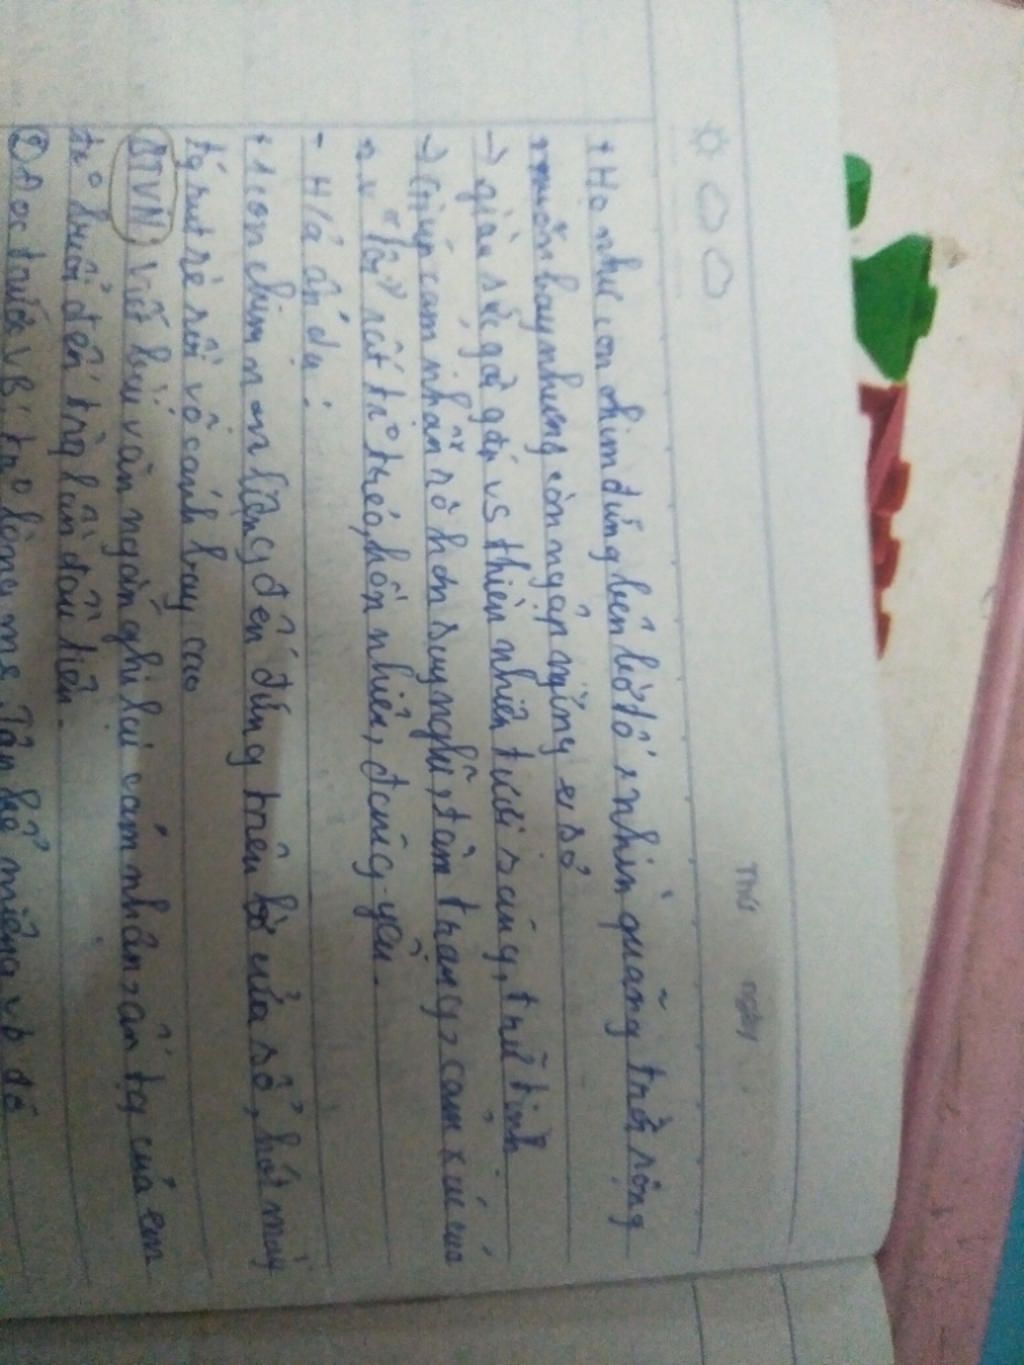 Thứ ngày
+ Họ như con chim đứng bên bờ tổ, nhìn quãng trời rộng
muốn bay nhưng còn ngập ngừng e sợ
→ giàu sắc gợi gắn vs thiên nhiên tươi sáng, trữ tình
→ Giúp cảm nhận rõ hơn suy nghĩ, tâm trạng, cảm xúc của
n.v "tôi" rất trẻ, hồn nhiên, đáng yêu.
- H/ả ẩn dụ:
+ 1 con chim non liệng đến đứng trên bờ cửa sổ, hót mấy
tg rụt rè rồi vỗ cánh bay cao
BTVN, viết bài văn ngắn ghi lại cảm nhận, ấn tg của em
từ buổi đến trg lần đầu tiên.
② Đọc trước VB: mẹ